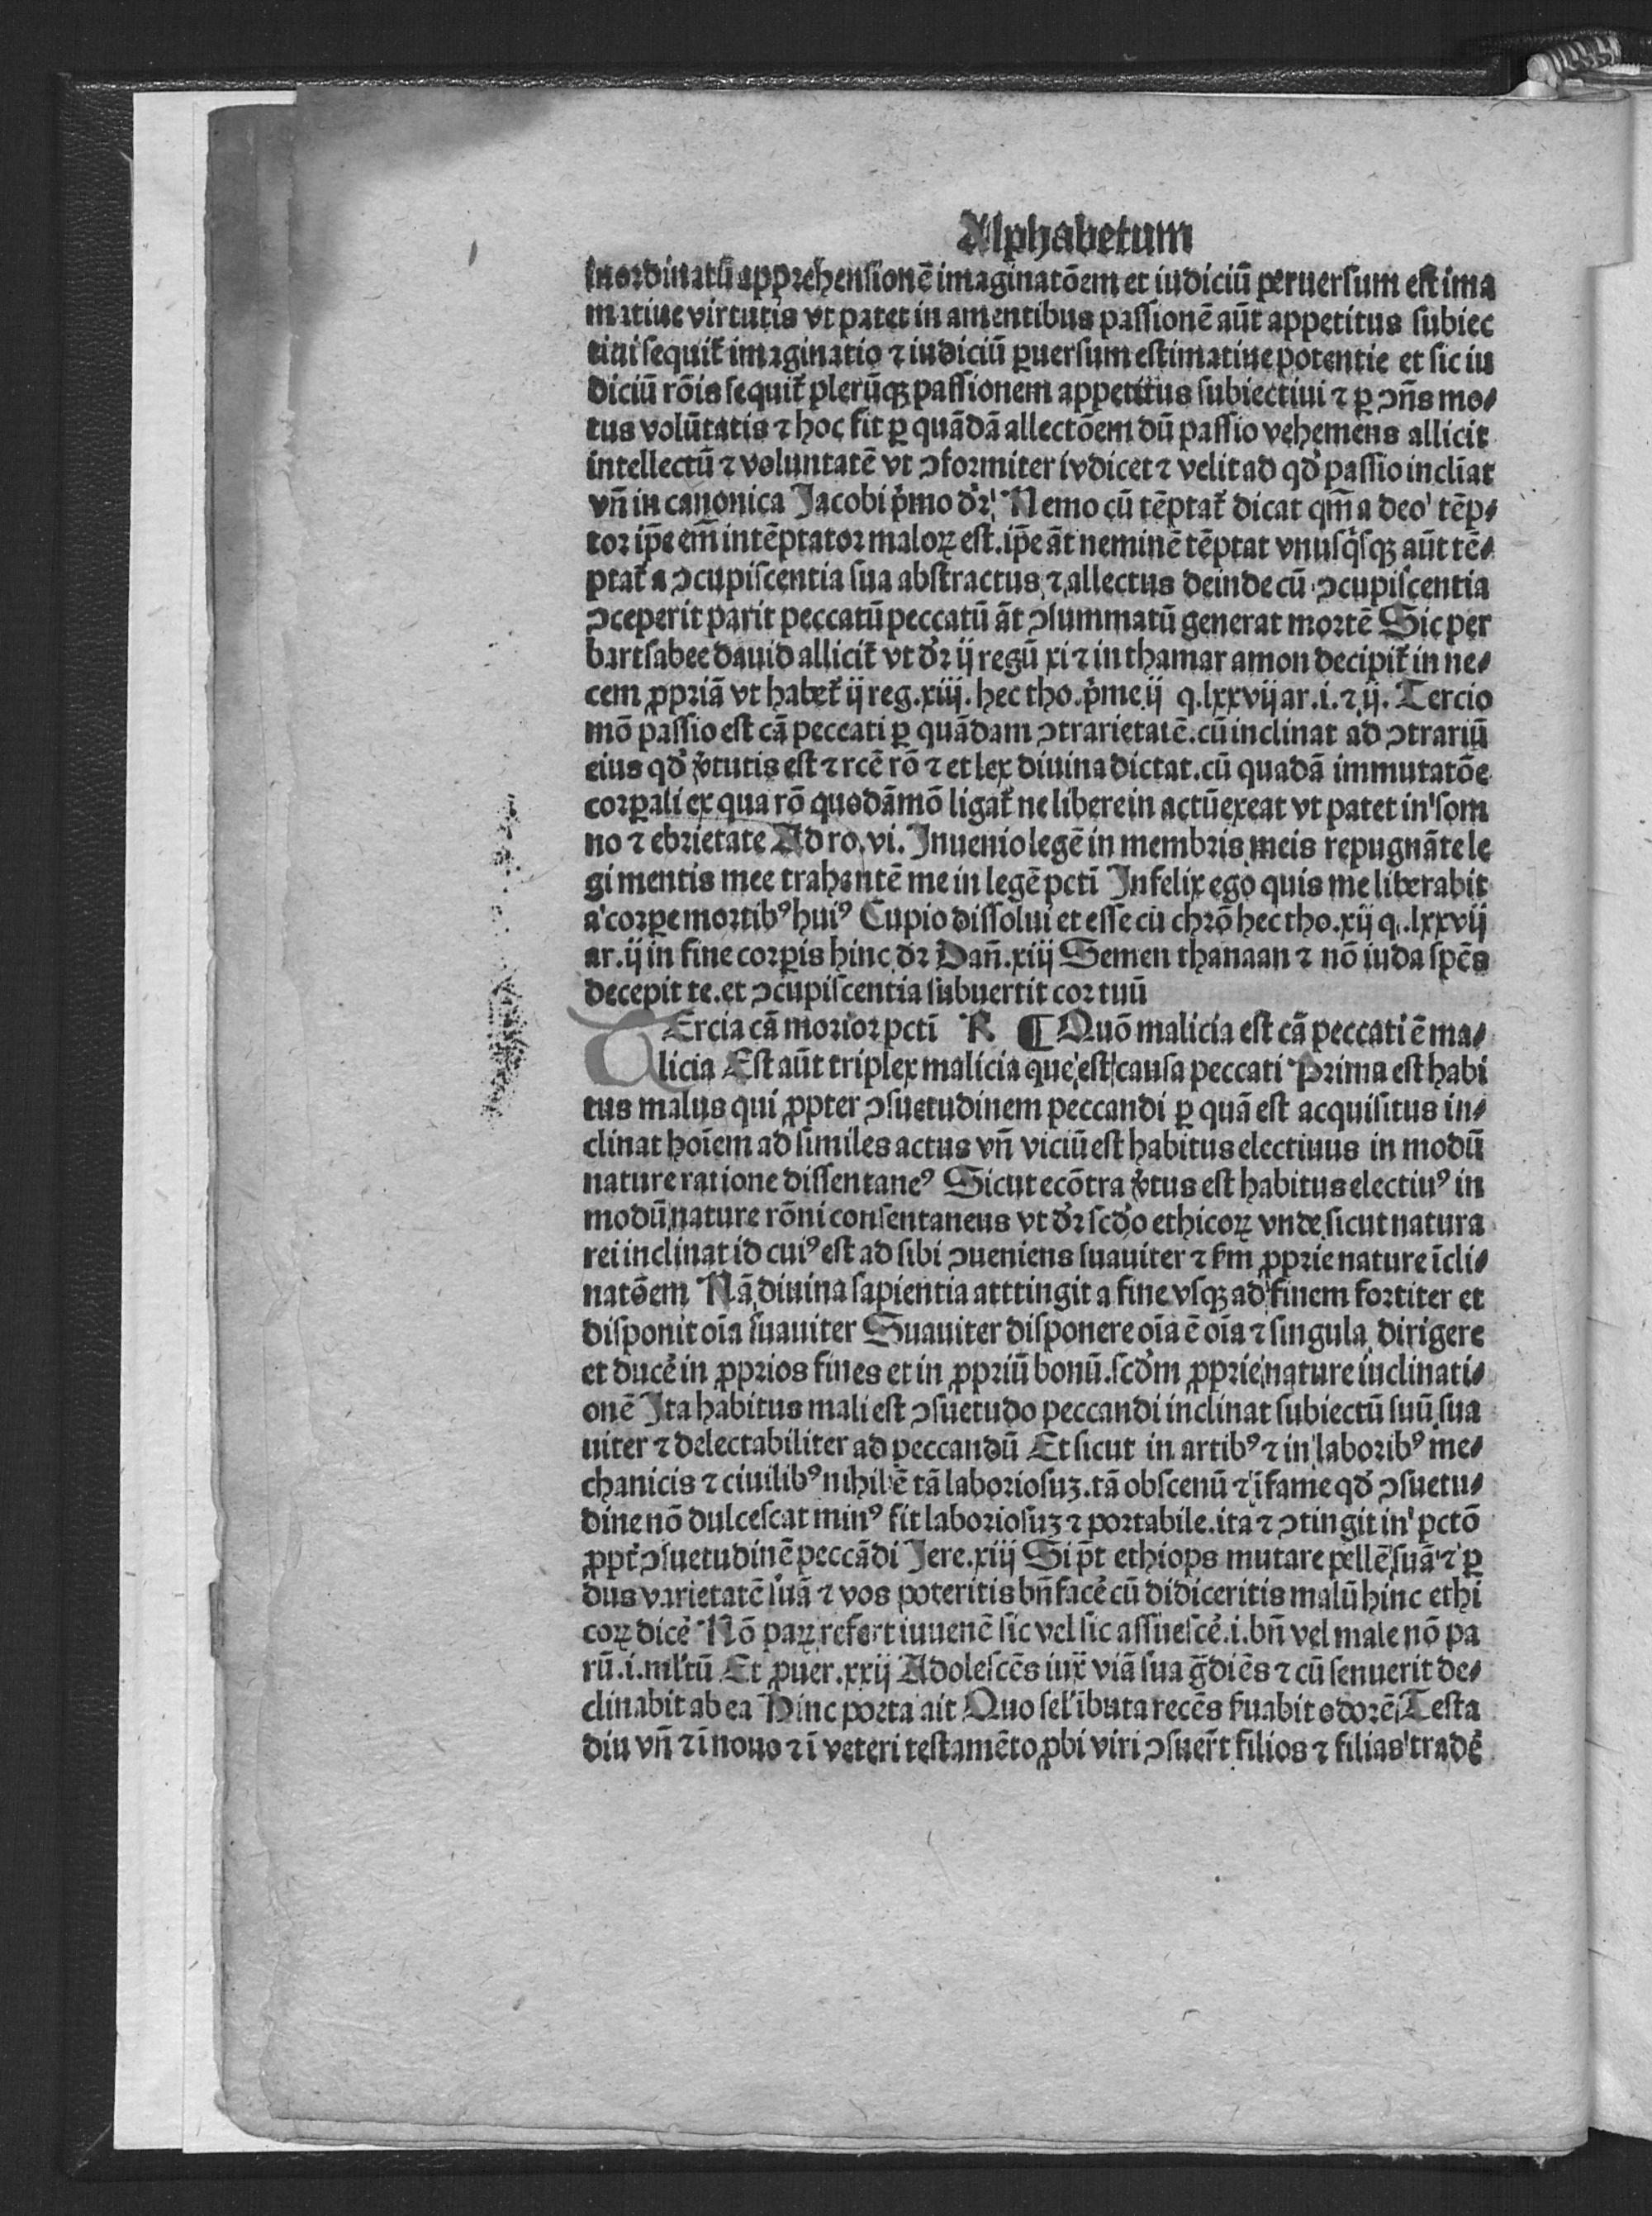 Alphabetum
inordinatū apprehensionē imaginatōem et iudiciū peruersum estima
matiue virtutis vt patet in amentibus passionē aūt appetitus subiec
tiui sequit᷑ imaginatio ⁊ iudiciū ꝑuersum estimatiue potentie et sic iu
diciū rōis sequit᷑ plerūqꝫ passionem appetitus subiectiui ⁊ ꝑ ↄn̄s mo⸗
tus volūtatis ⁊ hoc fit ꝑ quādā allectōem dū passio vehemens allicit
intellectū ⁊ voluntatē vt ↄformiter iudicet ⁊ velit ad qd̓ passio inclīat
vn̄ in canonica Jacobi p̓mo dr̄ Nemo cū tēptat᷑ dicat qm̄ a deo tēp⸗
tor ip̄e em̄ intēptator maloꝝ est. ip̄e āt neminē tēptat vnusq̓sqꝫ aūt tē⸗
ptat᷑ a ↄcupiscentia sua abstractus ⁊ allectus deinde cū ↄcupiscentia
ↄceperit parit peccatū peccatū āt ↄsummatū generat mortē Sic per
bartsabee dauid allicit᷑ vt dr̄ ij regū xi ⁊ in thamar amon decipit᷑ in ne⸗
cem ꝓpriā vt habet᷑ ij reg. xiij. hec tho. p̓me ij q. lxxvij ar. i. ⁊ ij. Tercio
mō passio est cā peccati ꝑ quādam ↄtrarietatē. cū inclinat ad ↄtrariū
eius qd̓ v̓tutis est ⁊ rcē rō ⁊ et lex diuina dictat. cū quadā immutatōe
corꝑali ex qua rō quodāmō ligat᷑ ne libere in actū exeat vt patet in som
no ⁊ ebrietate Ad ro. vi. Inuenio legē in membris meis repugnāte le
gi mentis mee trahentē me in legē pcti̅ Infelix ego quis me liberabit
a corꝑe mortibꝰ huiꝰ Cupio dissolui et esse cū chr̄o hec tho. xij q. lxxvij
ar. ij in fine corꝑis hinc dr̄ Dan̄. xiij Semen thanaan ⁊ nō iuda spēs
decepit te. et ↄcupiscentia subuertit cor tuū
TErcia cā morior pcti̅ R ¶ Quō malicia est cā peccati ē ma⸗
licia Est aūt triplex malicia que est causa peccati Prima est habi
tus malus qui ꝓpter ↄsuetudinem peccandi ꝑ quā est acquisitus in⸗
clinat hoīem ad similes actus vn̄ viciū est habitus electiuus in modū
nature ratione dissentaneꝰ Sicut ecōtra v̓tus est habitus electiuꝰ in
modū nature rōni consentaneus vt dr̄ scd̓o ethicoꝝ vnde sicut natura
rei inclinat id cuiꝰ est ad sibi ↄueniens suauiter ⁊ ẜm ꝓprie nature īcli⸗
natōem Nā diuina sapientia atttingit a fine vsqꝫ ad finem fortiter et
disponit oīa suauiter Suauiter disponere oīa ē oīa ⁊ singula dirigere
et ducē in ꝓprios fines et in ꝓpriū bonū. scd̓m ꝓprie nature iuclinati⸗
onē Ita habitus mali est ↄsuetudo peccandi inclinat subiectū suū sua
uiter ⁊ delectabiliter ad peccandū Et sicut in artibꝰ ⁊ in laboribꝰ me⸗
chanicis ⁊ ciuilibꝰ nihil ē tā laboriosuꝫ. tā obscenū ⁊ īfame qd̓ ↄsuetu⸗
dine nō dulcescat minꝰ fit laboriosuꝫ ⁊ portabile. ita ⁊ ↄtingit in pctō
ꝓpt̓ ↄsuetudinē peccādi Jere. xiij Si pt̄ ethiops mutare pellē suā ⁊ ꝑ
dus varietatē suā ⁊ vos poteritis bn̄ facē cū didiceritis malū hinc ethi
coꝝ dicē Nō paꝝ refert iuuenē sic vel sic assuescē. i. bn̄ vel male nō pa
rū. i. ml̓tū Et ꝓuer. xxij Adolescēs iux̄ viā sua g̅diēs ⁊ cū senuerit de⸗
clinabit ab ea Hinc porta ait Quo sel̓ ibuta recēs ẜuabit odorē Testa
diu vn̄ ⁊ ī nouo ⁊ ī veteri testamēto ꝓbi viri ↄsuer̄t filios ⁊ filias tradē